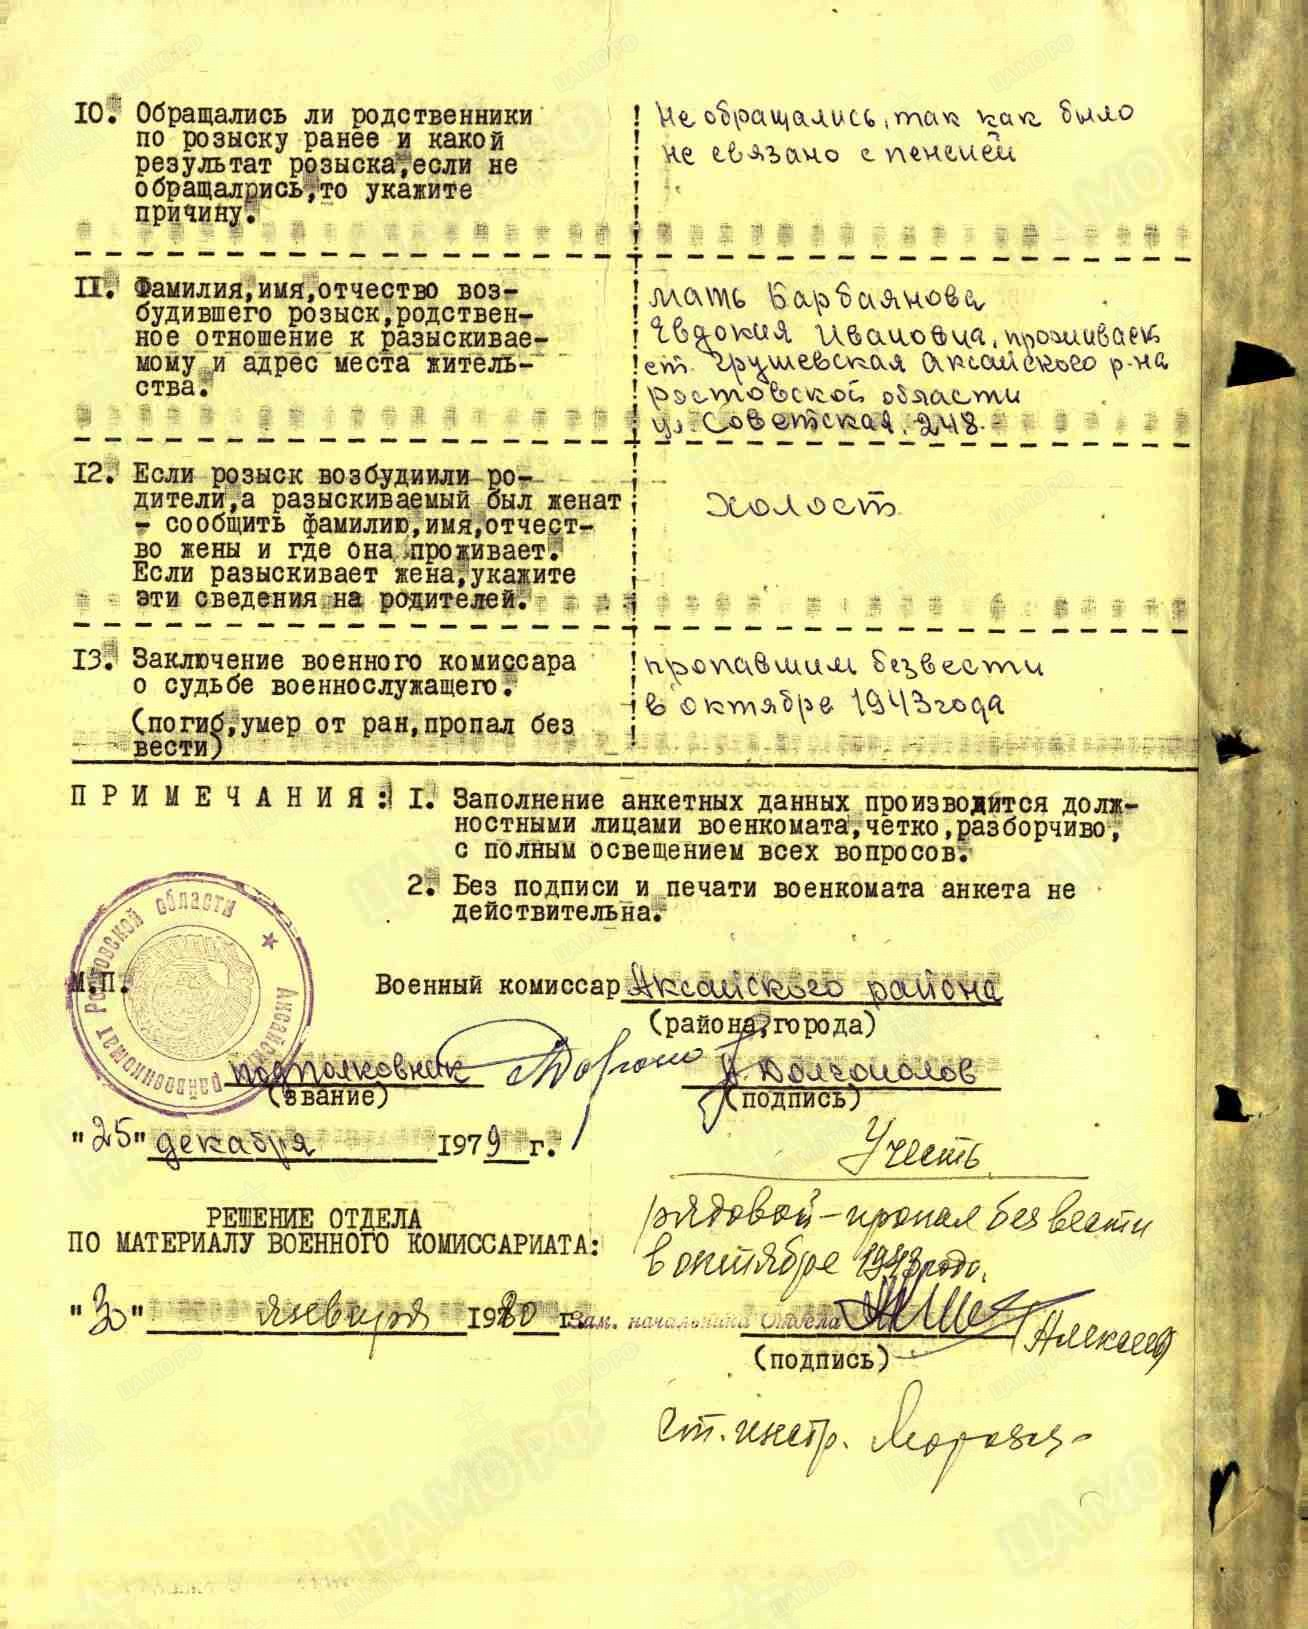 10. Обращались ли родственники
по розыску ранее и какой
результат розыска, если не
обращалрись, то укажите
причину.
Не обращались, так как было
не связано с пенсией
II. Фамилия, имя, отчество воз-
будившего розыск, родствен-
ное отношение к разыскивае-
мому и адрес места житель-
ства.
мать Барбаянова
Евдокия Ивановна, проживает
ст. Грушевская Аксайского р-на
ростовской области
ул. Советская. 248.
12. Если розыск возбудиили ро-
дители, а разыскиваемый был женат
- сообщить фамилию, имя, отчест-
во жены и где она проживает.
Если разыскивает жена, укажите
эти сведения на родителей.
холост
13. Заключение военного комиссара
о судьбе военнослужащего.
(погиб, умер от ран, пропал без
вести)
пропавшим безвести
в октябре 1943 года
ПРИМЕЧАНИЯ: I. Заполнение анкетных данных производится долж-
ностными лицами военкомата, четко, разборчиво,
с полным освещением всех вопросов.
2. Без подписи и печати военкомата анкета не
действительна.
Аксайский райвоенкомат Ростовской области
М.П.
Военный комиссар Аксайского района
(района, города)
подполковник
(звание)
(подпись)
"25" декабря 1979 г.
Учесть
РЕШЕНИЕ ОТДЕЛА
ПО МАТЕРИАЛУ ВОЕННОГО КОМИССАРИАТА:
рядовой - пропал без вести
в октябре 1943 года.
"3" января 1980 г. Зам. начальника Отдела
(подпись)
ст. инстр.
ЦАМО.РФ